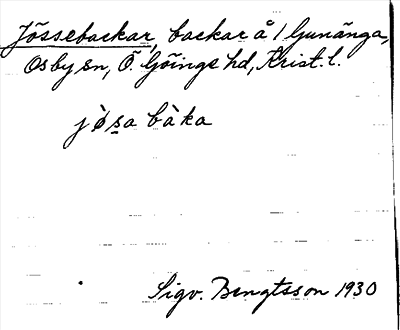 Jössebackar, backar å 1 Gunänga,
Osby sn, Ö. Göinge hd, Krist. l.
jòsa bàka
Sigv. Bengtsson 1930